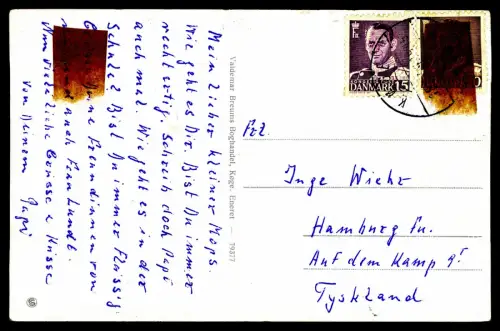 Mein lieber kleiner Mops.
Wie geht es Dir Bist Du immer
recht artig. Schreib doch Papi
auch mal. Wie geht es in der
Schule? Bist Du immer fleissig.
Deine Freundinnen von
und auch Frau Lundt.
Nun viele liebe Grüsse & Küsse
von Deinem Papi
Valdemar Breuns Boghandel, Køge. Eneret — 79377
DANMARK 15
DANMARK
Frl.
Inge Wiehr
Hamburg Fu.
Auf dem Kamp 9
Tyskland